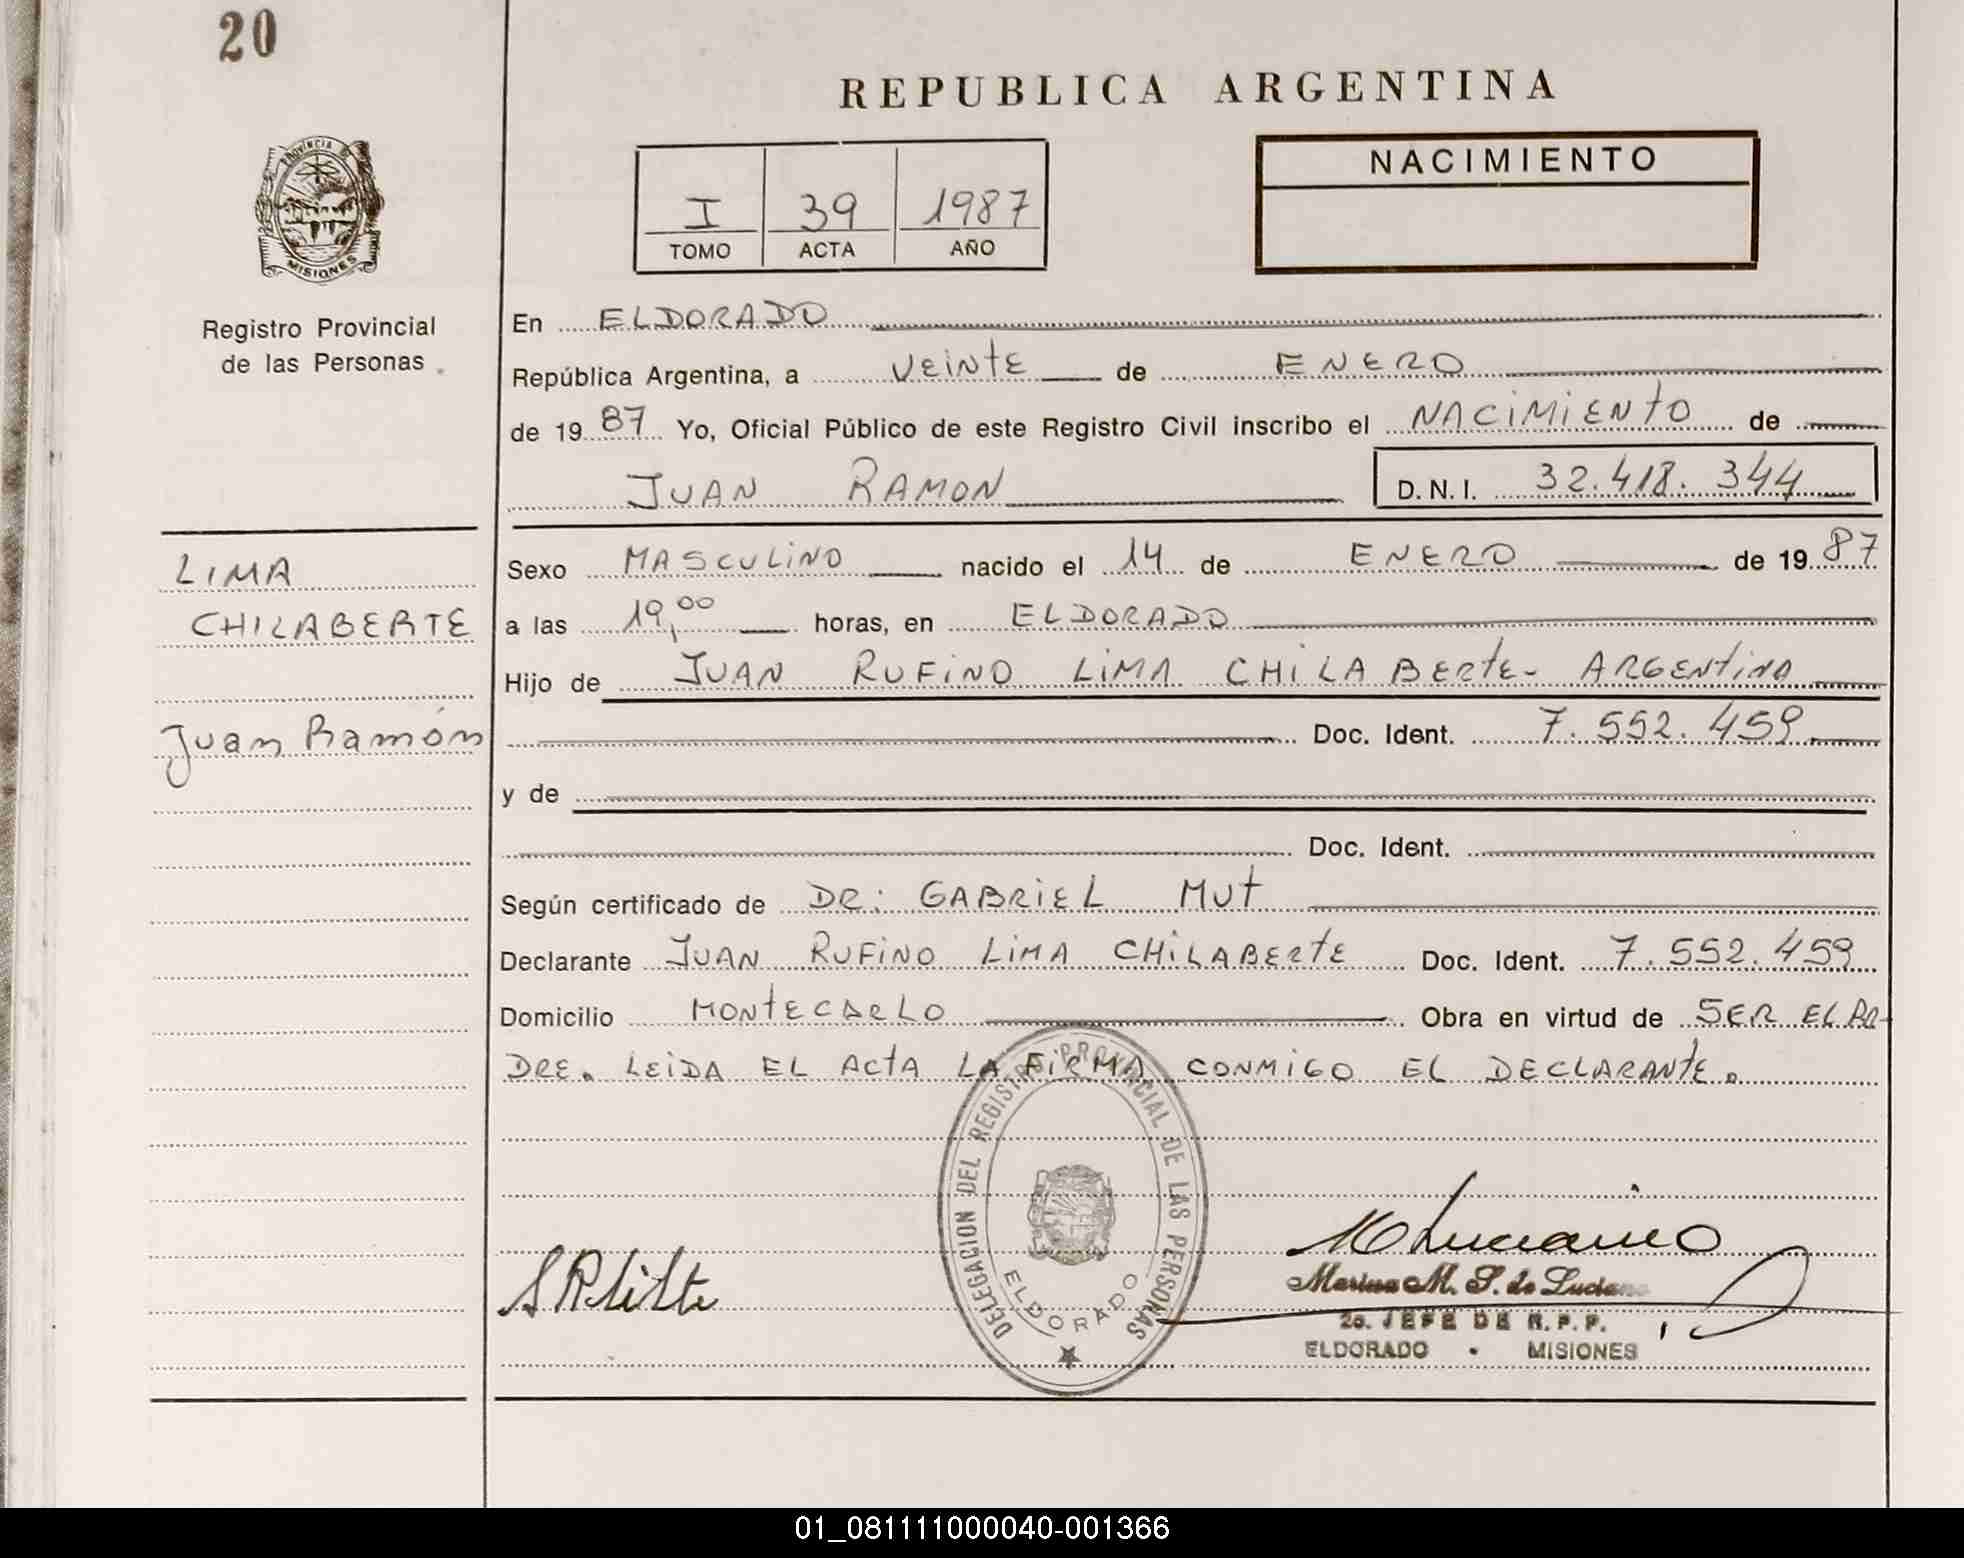 20
REPUBLICA ARGENTINA
PROVINCIA DE
MISIONES
Registro Provincial
de las Personas
I 39 1987
TOMO ACTA AÑO
NACIMIENTO
En ELDORADO
República Argentina, a VEINTE de ENERO
de 1987 Yo, Oficial Público de este Registro Civil inscribo el NACIMIENTO de
JUAN RAMON D.N.I. 32.418.344
LIMA
CHILABERTE
Juan Ramón
Sexo MASCULINO nacido el 14 de ENERO de 1987
a las 19,00 horas, en ELDORADO
Hijo de JUAN RUFINO LIMA CHILABERTE- ARGENTINA
Doc. Ident. 7.552.459
y de
Doc. Ident.
Según certificado de DR: GABRIEL MUT
Declarante JUAN RUFINO LIMA CHILABERTE Doc. Ident. 7.552.459
Domicilio MONTECARLO Obra en virtud de SER EL PA-
DRE. LEIDA EL ACTA LA FIRMA CONMIGO EL DECLARANTE.
DELEGACION DEL REGISTRO PROVINCIAL DE LAS PERSONAS
ELDORADO
Marina M. S. de Luciano
2o. JEFE DE R.P.P.
ELDORADO • MISIONES
01_081111000040-001366